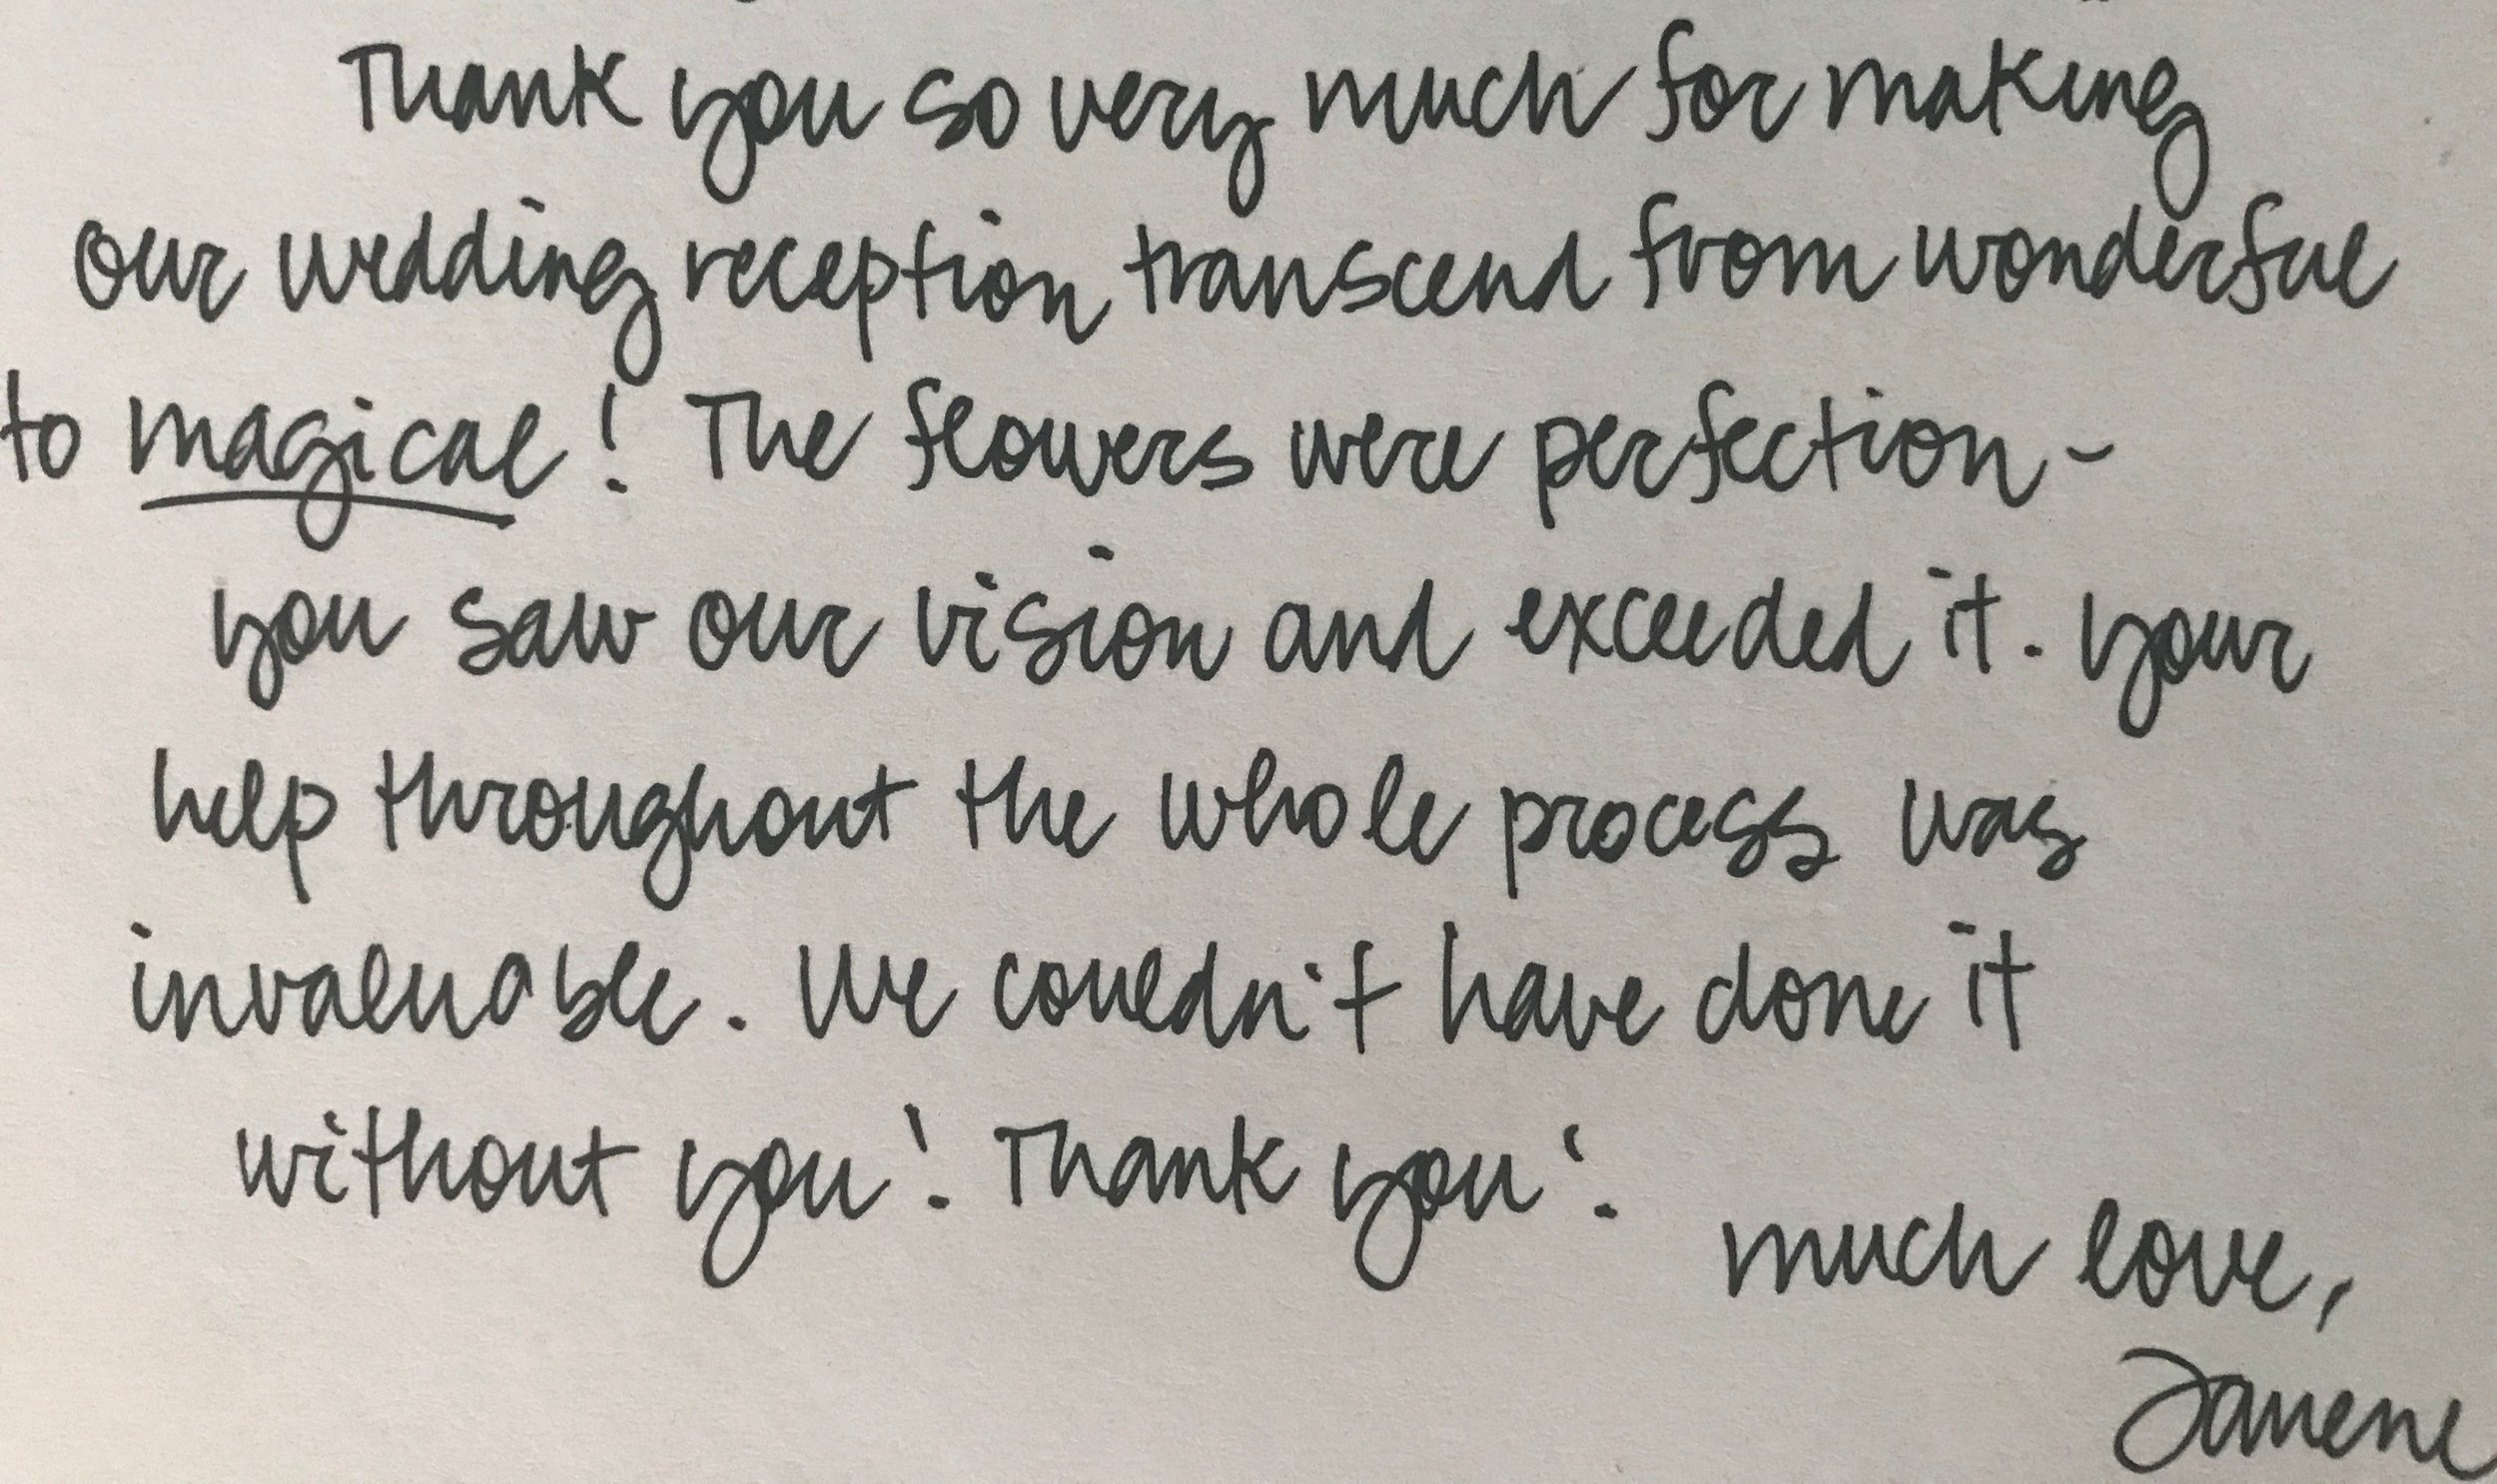 Thank you so very much for making
our wedding reception transcend from wonderful
to magical! The flowers were perfection-
you saw our vision and exceeded it. Your
help throughout the whole process was
invaluable. We couldn't have done it
without you! Thank you!
much love,
Janene